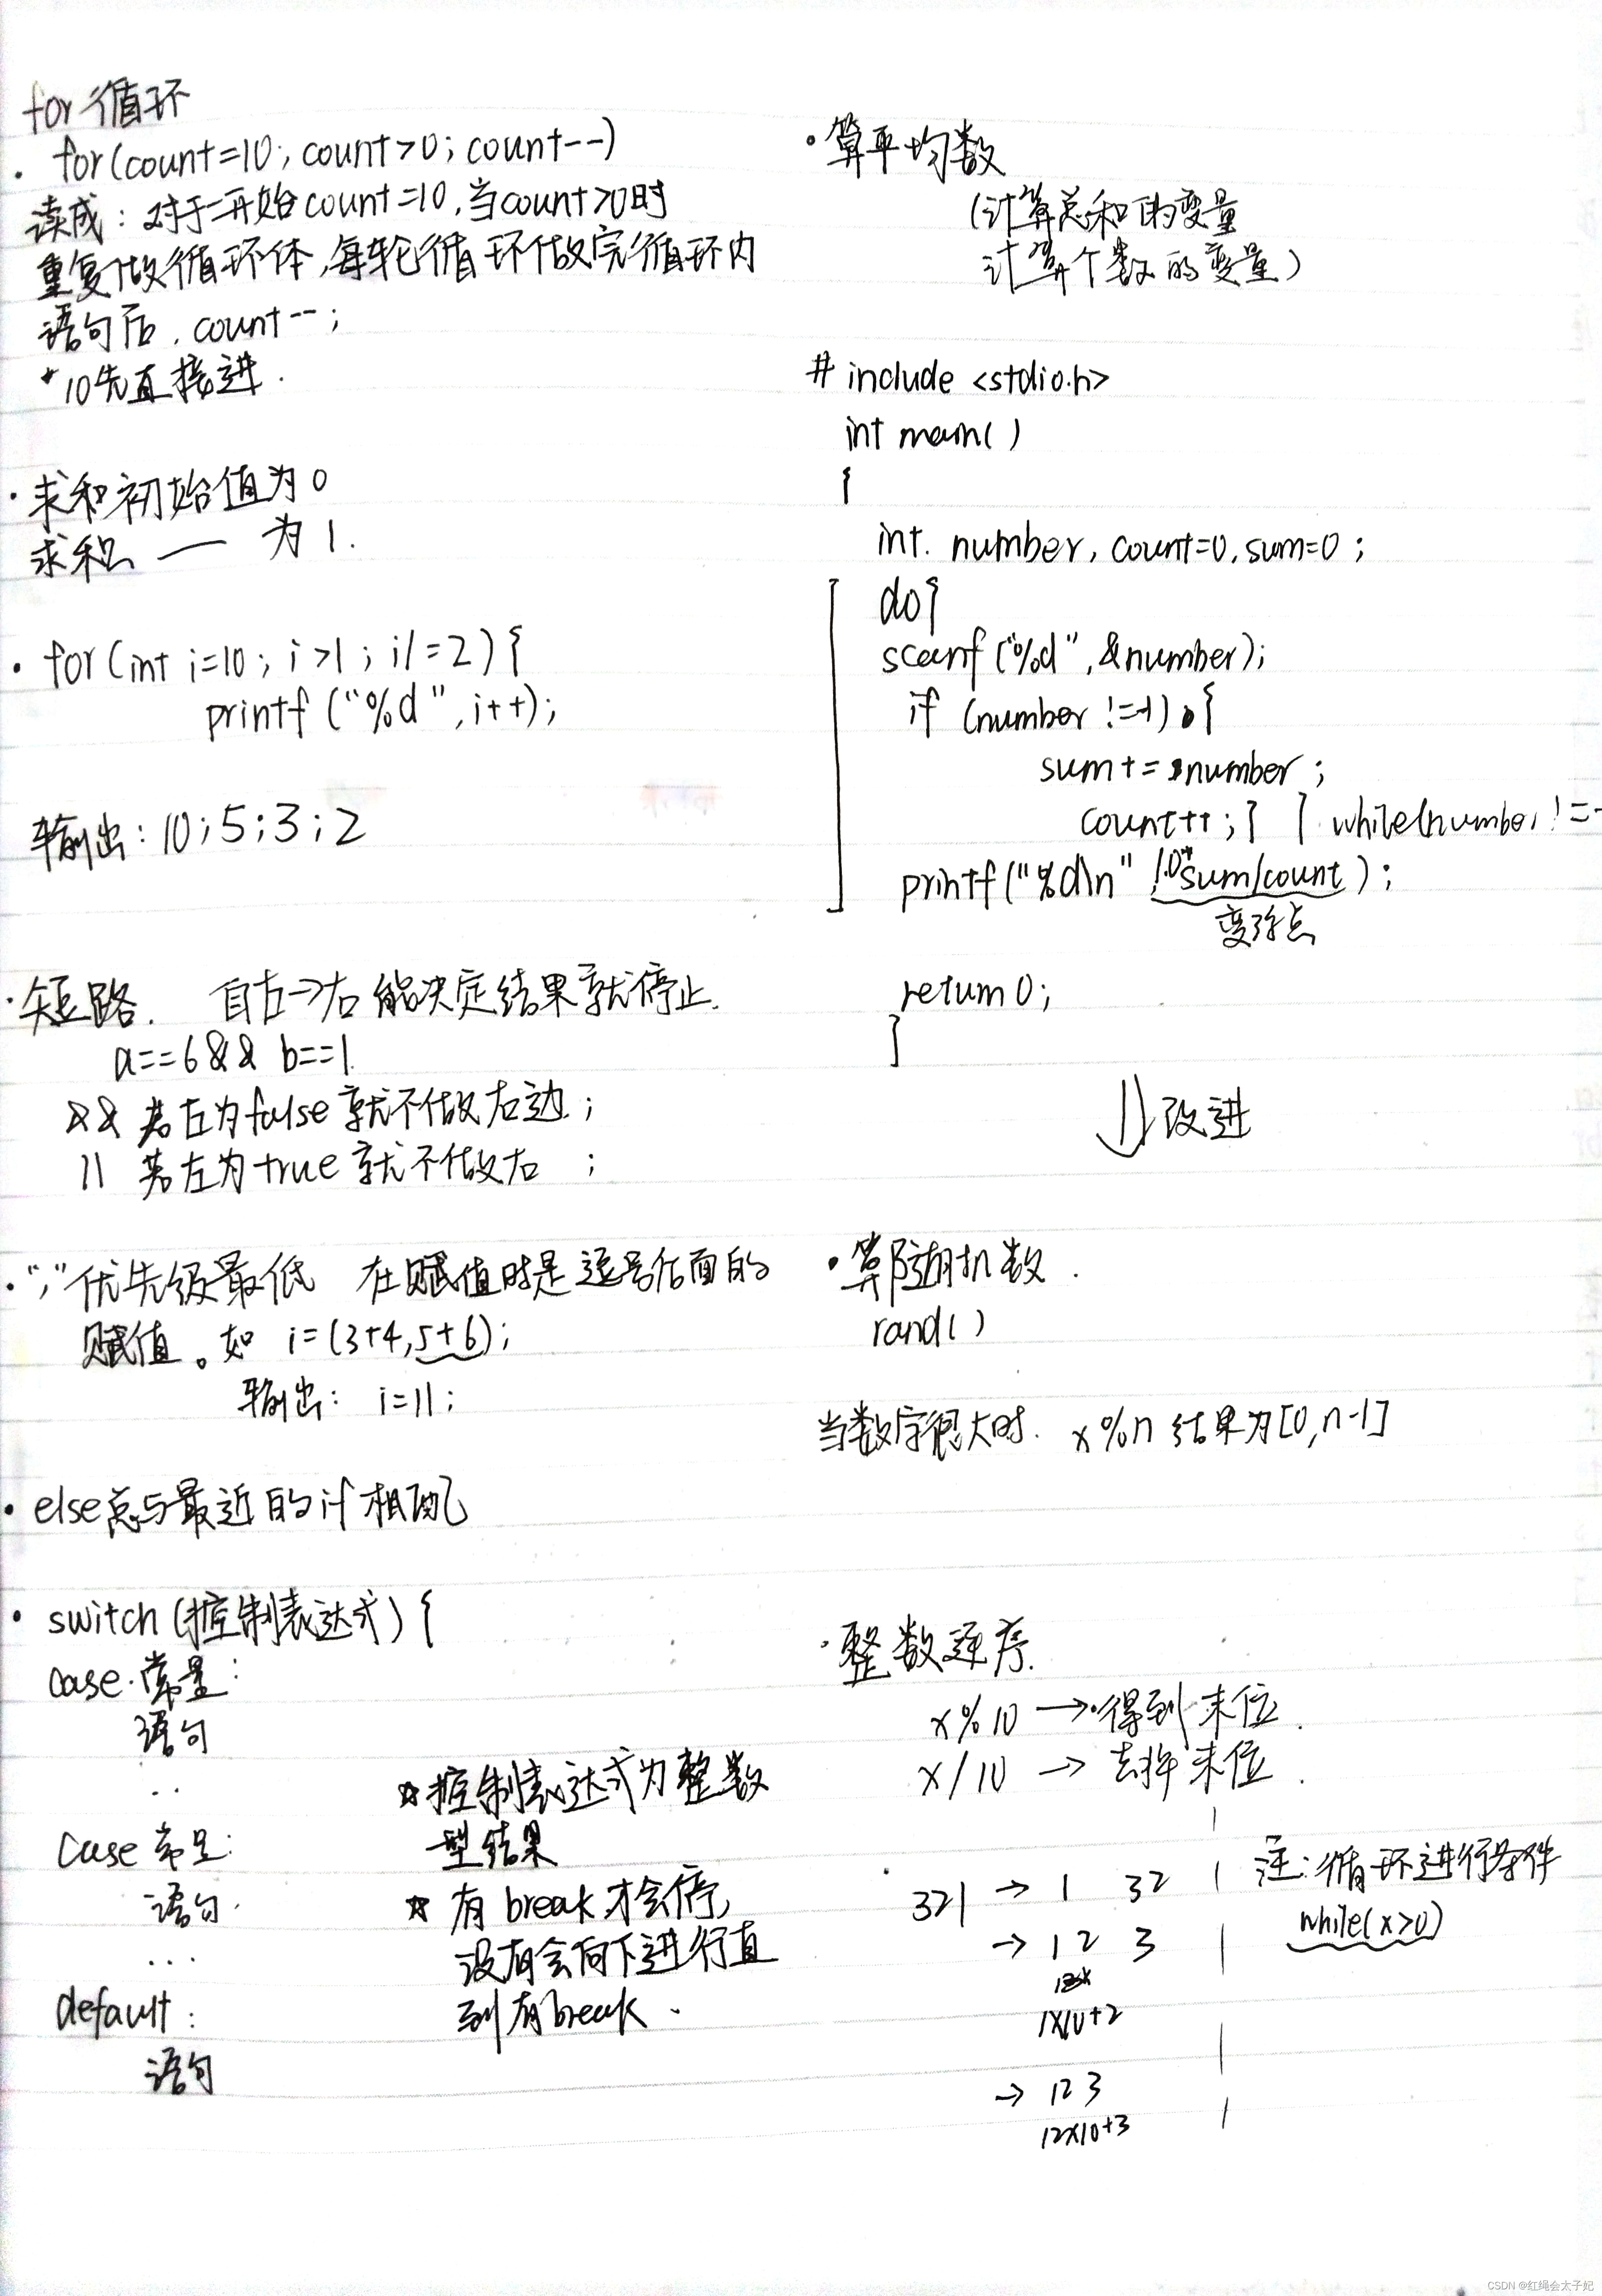 for循环
· for(count=10; count>0; count--)
读成：对于一开始count=10,当count>0时
重复做循环体,每轮循环做完循环内
语句后, count--;
*10先直接进.
· 求和初始值为0
求积 —— 为1.
· for(int i=10; i>1; i/=2){
printf("%d", i++);
输出: 10;5;3;2
· 短路. 自左→右 能决定结果就停止.
a==6 && b==1
&& 若左为false就不做右边;
|| 若左为true就不做右 ;
· "," 优先级最低 在赋值时是逗号后面的
赋值。如 i=(3+4,5+6);
输出: i=11;
· else总与最近的if相配
· switch(控制表达式){
case·常量:
语句
..
case 常量:
语句.
...
default:
语句
☆控制表达式为整数
型结果
☆ 有break才会停,
没有会向下进行直
到有break.
· 算平均数
(计算总和的变量
计算个数的变量)
# include <stdio.h>
int main()
{
int. number, count=0, sum=0;
do{
scanf("%d", &number);
if (number !=-1) {
sum+= number;
count++; } } while(number !=-
printf("%d\n" 1.0*sum/count);
变浮点
return 0;
}
改进
· 算随机数.
rand()
当数字很大时. x%n 结果为[0,n-1]
· 整数逆序.
x%10 → 得到末位.
x/10 → 去掉末位.
321 → 1 32
→ 12 3
1x10+2
→ 123
12x10+3
注: 循环进行条件
while(x>0)
CSDN @红绳会太子妃